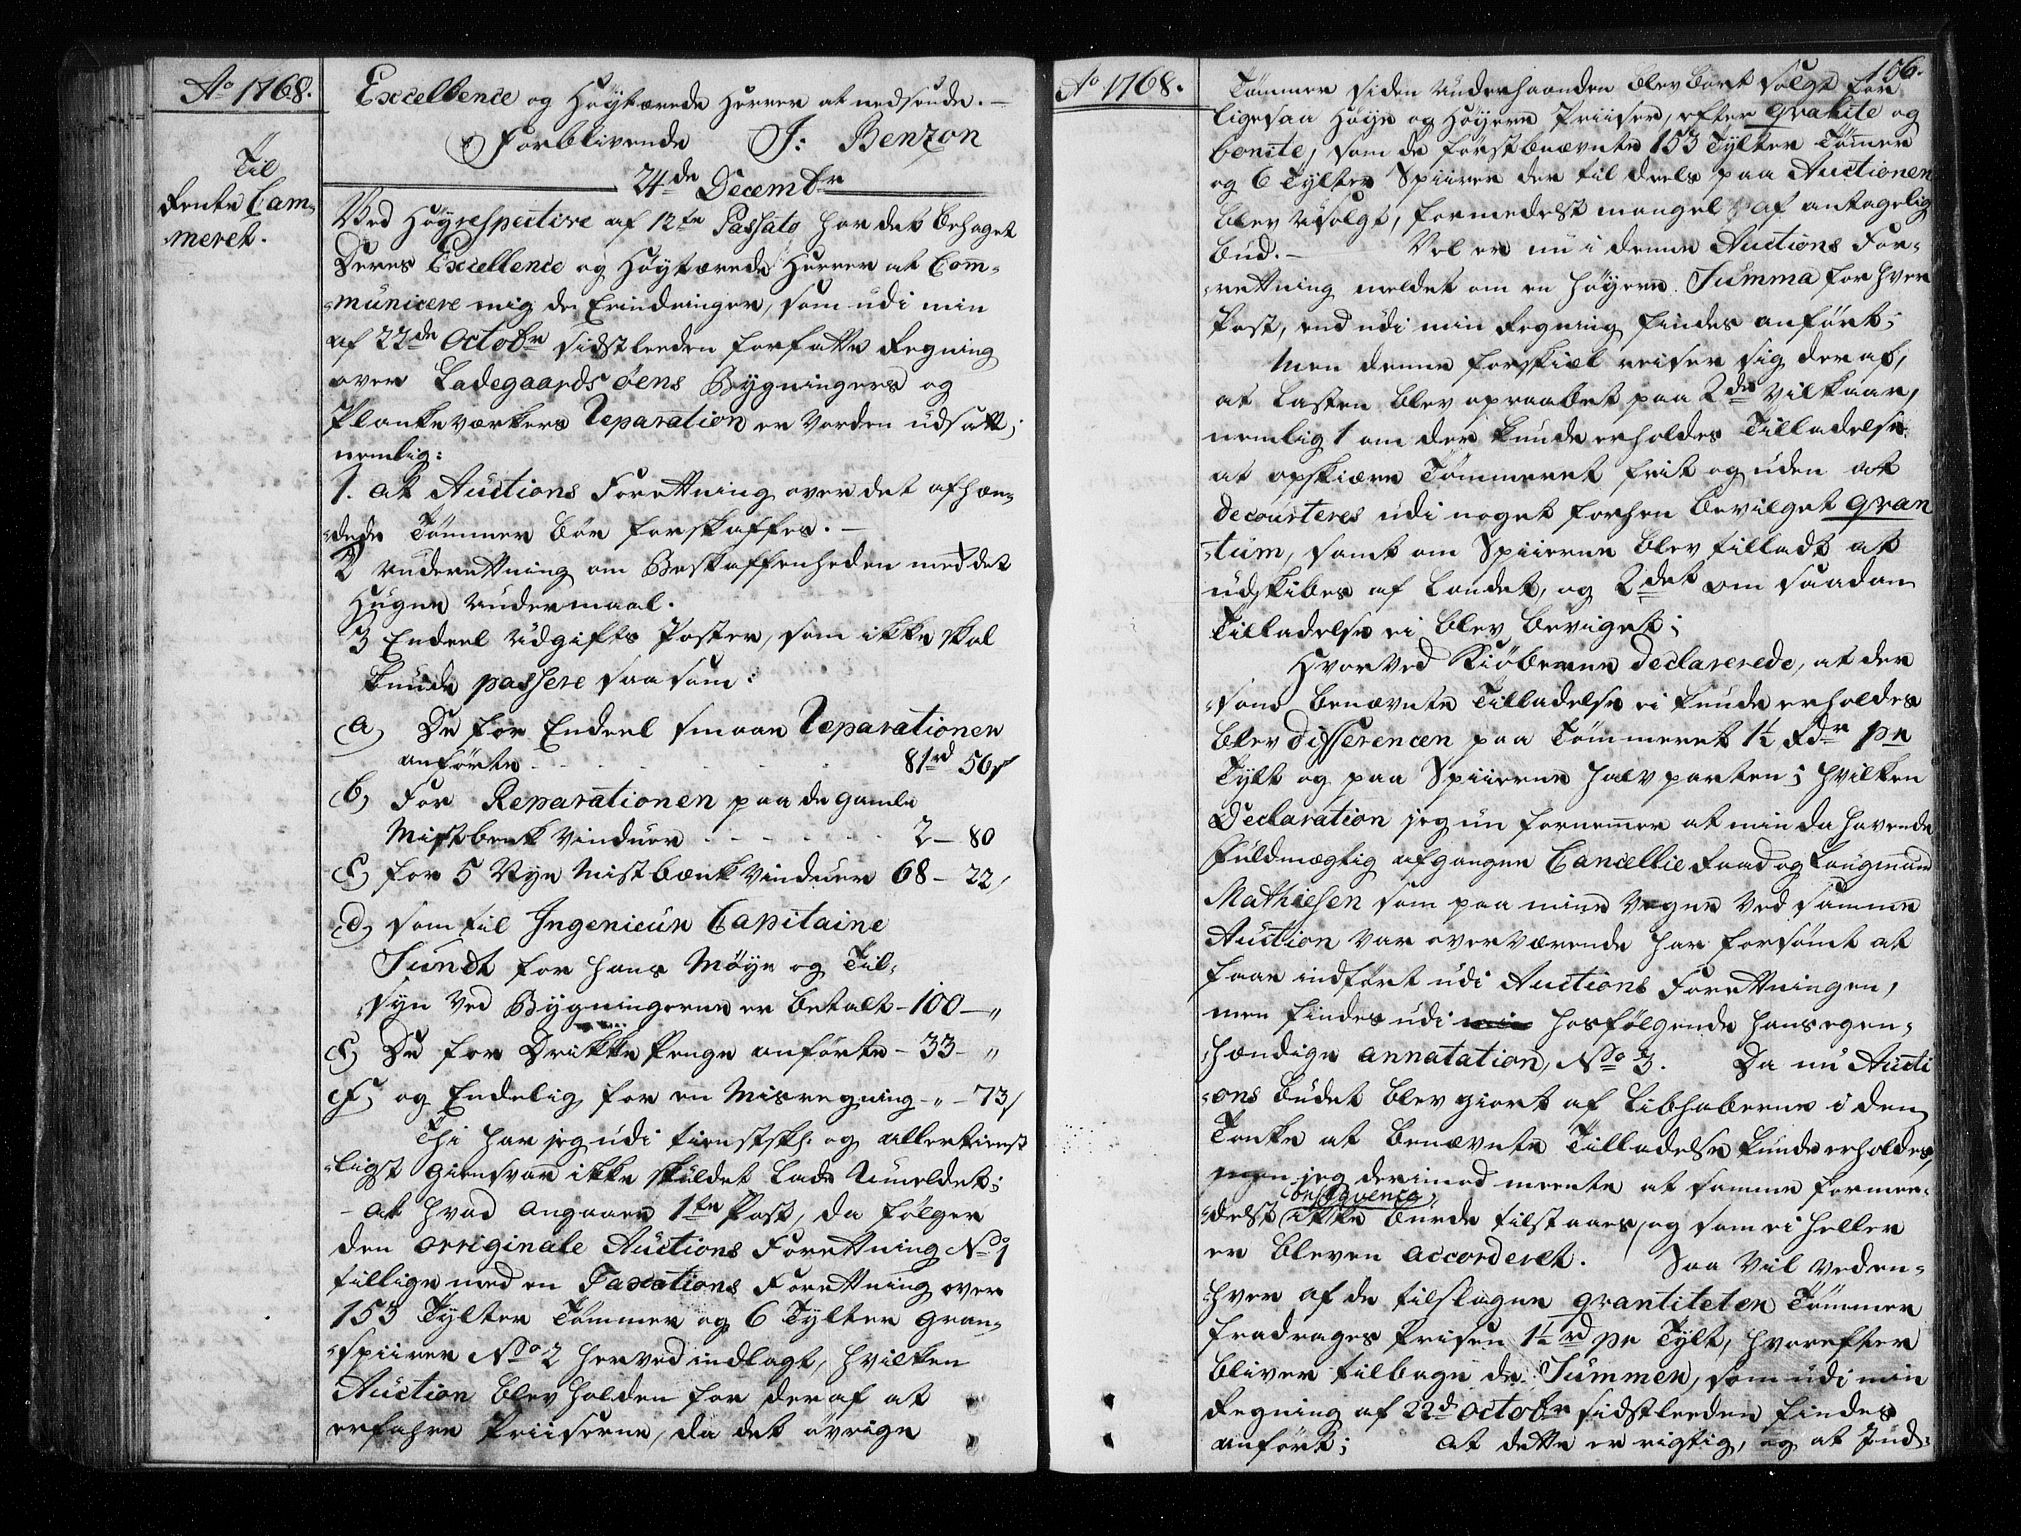 Ao 1768.
Excellence og Høytærede Herrer at nedsende. –
Forblivende J: Benzon
24de Decembr
Til
Rente Cam-
-meret.
Ved Høyrespective af 12te Passato har det behaget
Deres Excellence og Høytærede Herrer at Com-
-municere mig de Erindringer, som udi min
af 22de Octobr sidstleeden forfatte Regning
over Ladegaardsøens Bygningers og
Plankeværkers Reparation er vorden udsatt,
nemlig:
1. at Auctions Forettning over det afhæn-
-dede Tømmer bør forskaffes. –
2 underettning om Beskaffenheden med det
Hugne undermaal.
3 Endeel Udgifts Poster, som ikke skal
kunde passere saasom:
a, De for Endeel smaae Reparationer
anførte . . . . . 81rd 56s
b, For Reparationen paa de gamle
Mistbenk vinduer . . . . . 2 – 80
c, for 5 Nye Mistbænk Vinduer 68 – 22
d, som til Ingenieur Capitaine
Sundt for hans Møye og Til-
-syn ved Bygningerne er betalt – 100 – "
e, De for Drikke Penge anførte – 33 – "
f, og Endelig for en Misregning – " – 73
Thi har jeg udi tienstskl: og allertienst
-ligst giensvar ikke skuldet lade Umeldet;
– at hvad angaaer 1te Post, da følger
den originale Auctions Forettning No 1
tillige med en Taxations Forettning over
153 Tylter Tømmer og 6 Tylter Gran-
-spiirer No 2 herved indlagt, hvilken
Auction blev holden for deraf at
erfahre Priiserne, da det øvrige
Ao 1768.
156.
Tømmer siden underhaanden blev bort solgt for
ligesaa høye og høyere Priiser, efter qvalite og
bonite, som de førstbnævnte 153 Tylter Tømer
og 6 Tylter Spiirer der til deels paa Auctionen
blev usolgt, formedelst mangel af antagelig
bud. – Vel er nu i denne Auctions For-
-rettning meldet om en høyere Summa for hver
Post, end udi min Regning findes anført;
Men denne forskiæl reiser sig deraf,
at Lasten blev opraabet paa 2de Vilkaar,
nemlig 1 om der kunde erholdes Tilladelse
at opskiære Tømmeret frit og uden at
decourteres udi noget forhen bevilget qvan
-tum, samt om Spiirerne blev tilladt at
udskibes af Landet, og 2det om saadan
Tilladelse ei blev bevilget;
Hvorved Kiøberne declarerede, at der
-som benævnte Tilladelse ei kunde erholdes
blev differencen paa Tømmeret 1½ Rdr pr
Tylt og paa Spiirerne halv parten; hvilken
Declaration jeg nu fornemer at min da havende
Fuldmægtig afgangne Cancellie Raad og Laugmand
Mathiesen som paa mine Vegne ved samme
Auction var overværende har forsømt at
faae indført udi Auctions Forettningen,
men findes udi hosfølgende hans egen-
-hændige annatation, No 3. Da nu Aucti
-ons budet blev giort af Libhaberne i den
Tanke at benævnte Tilladelse kunde erholdes,
men jeg derimod meente at samme forme-
-delst conseqvence ikke burde tilstaaes, og som ei heller
er bleven accorderet. Saa vil veden-
-hver af de tilslagne qvantiteter Tømmer
fradrages Prisen 1½ rd pr Tylt, hvorefter
bliver tilbage de Summer, som udi min
Regning af 22d Octobr sidstleeden findes
anført; at dette er rigtig, og at Ind-